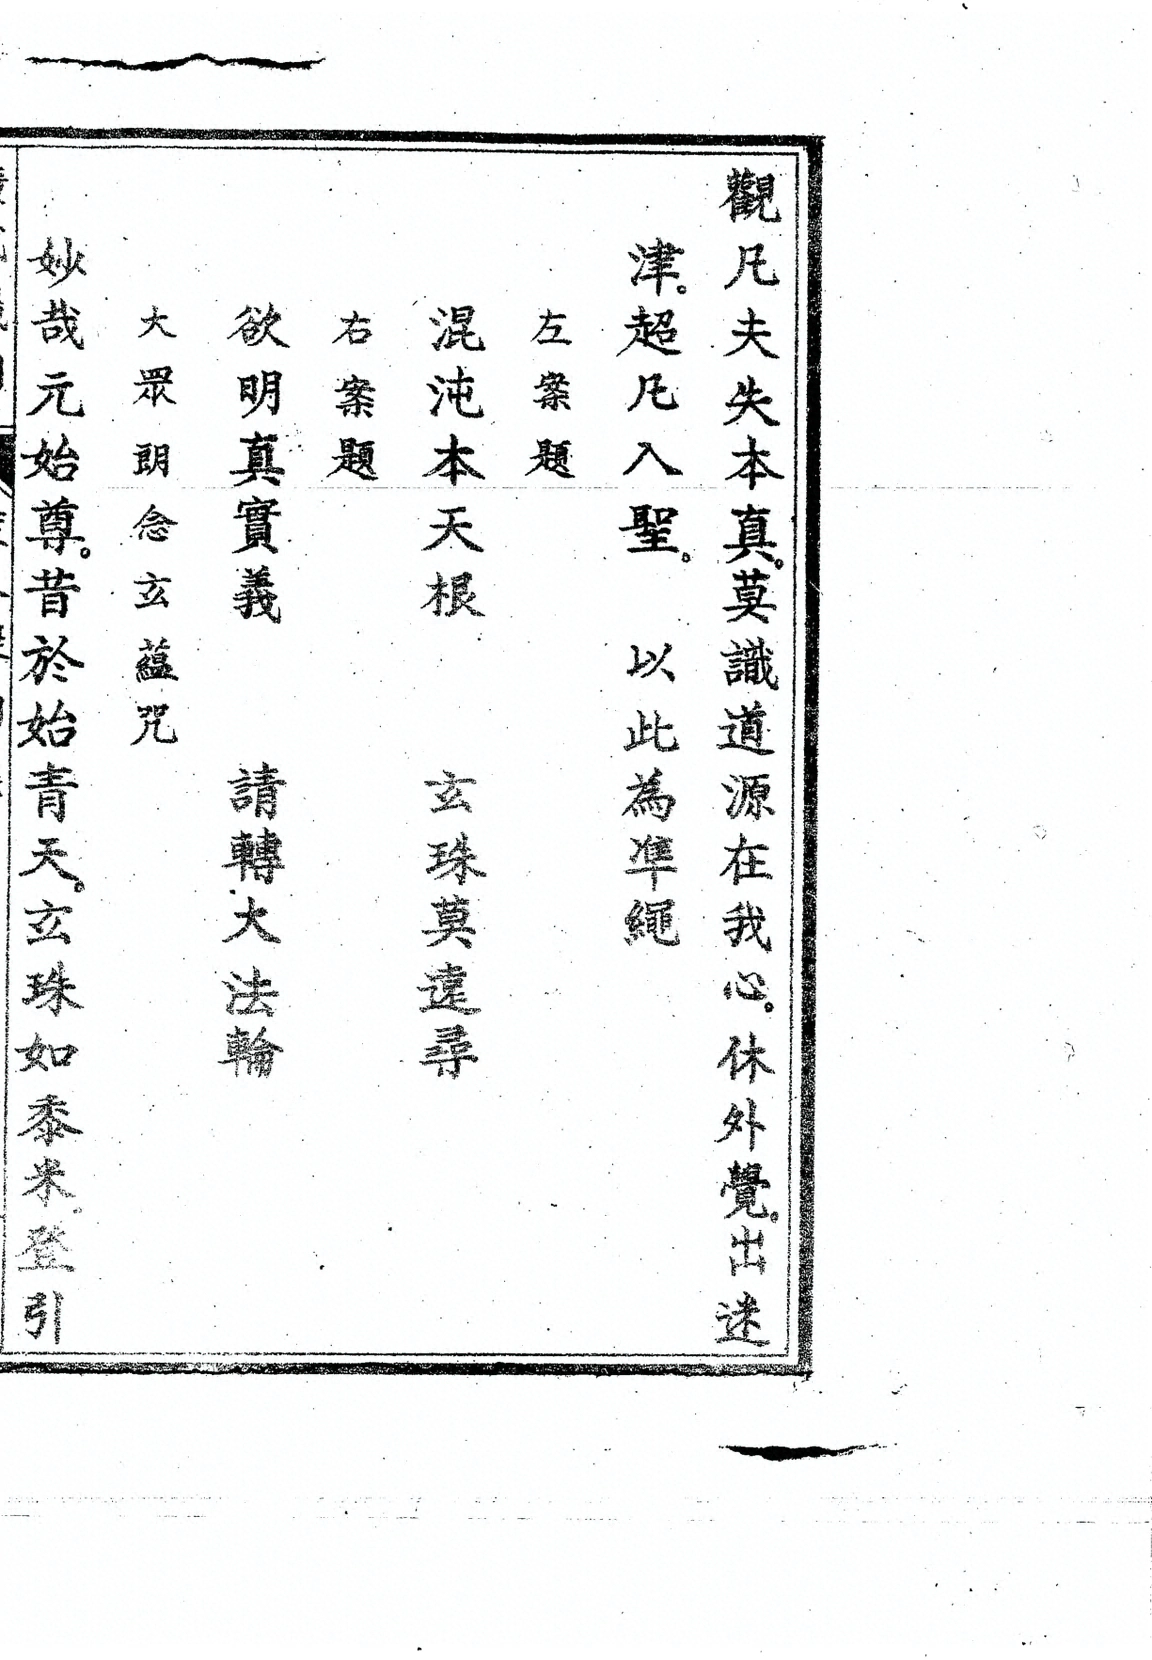 觀凡夫失本真。莫識道源在我心。休外覺。出迷
津。超凡入聖。　以此為準繩
左案題
混沌本天根　　玄珠莫遠尋
右案題
欲明真實義　　請轉大法輪
大眾朗念玄蘊咒
妙哉元始尊。昔於始青天。玄珠如黍米。登引